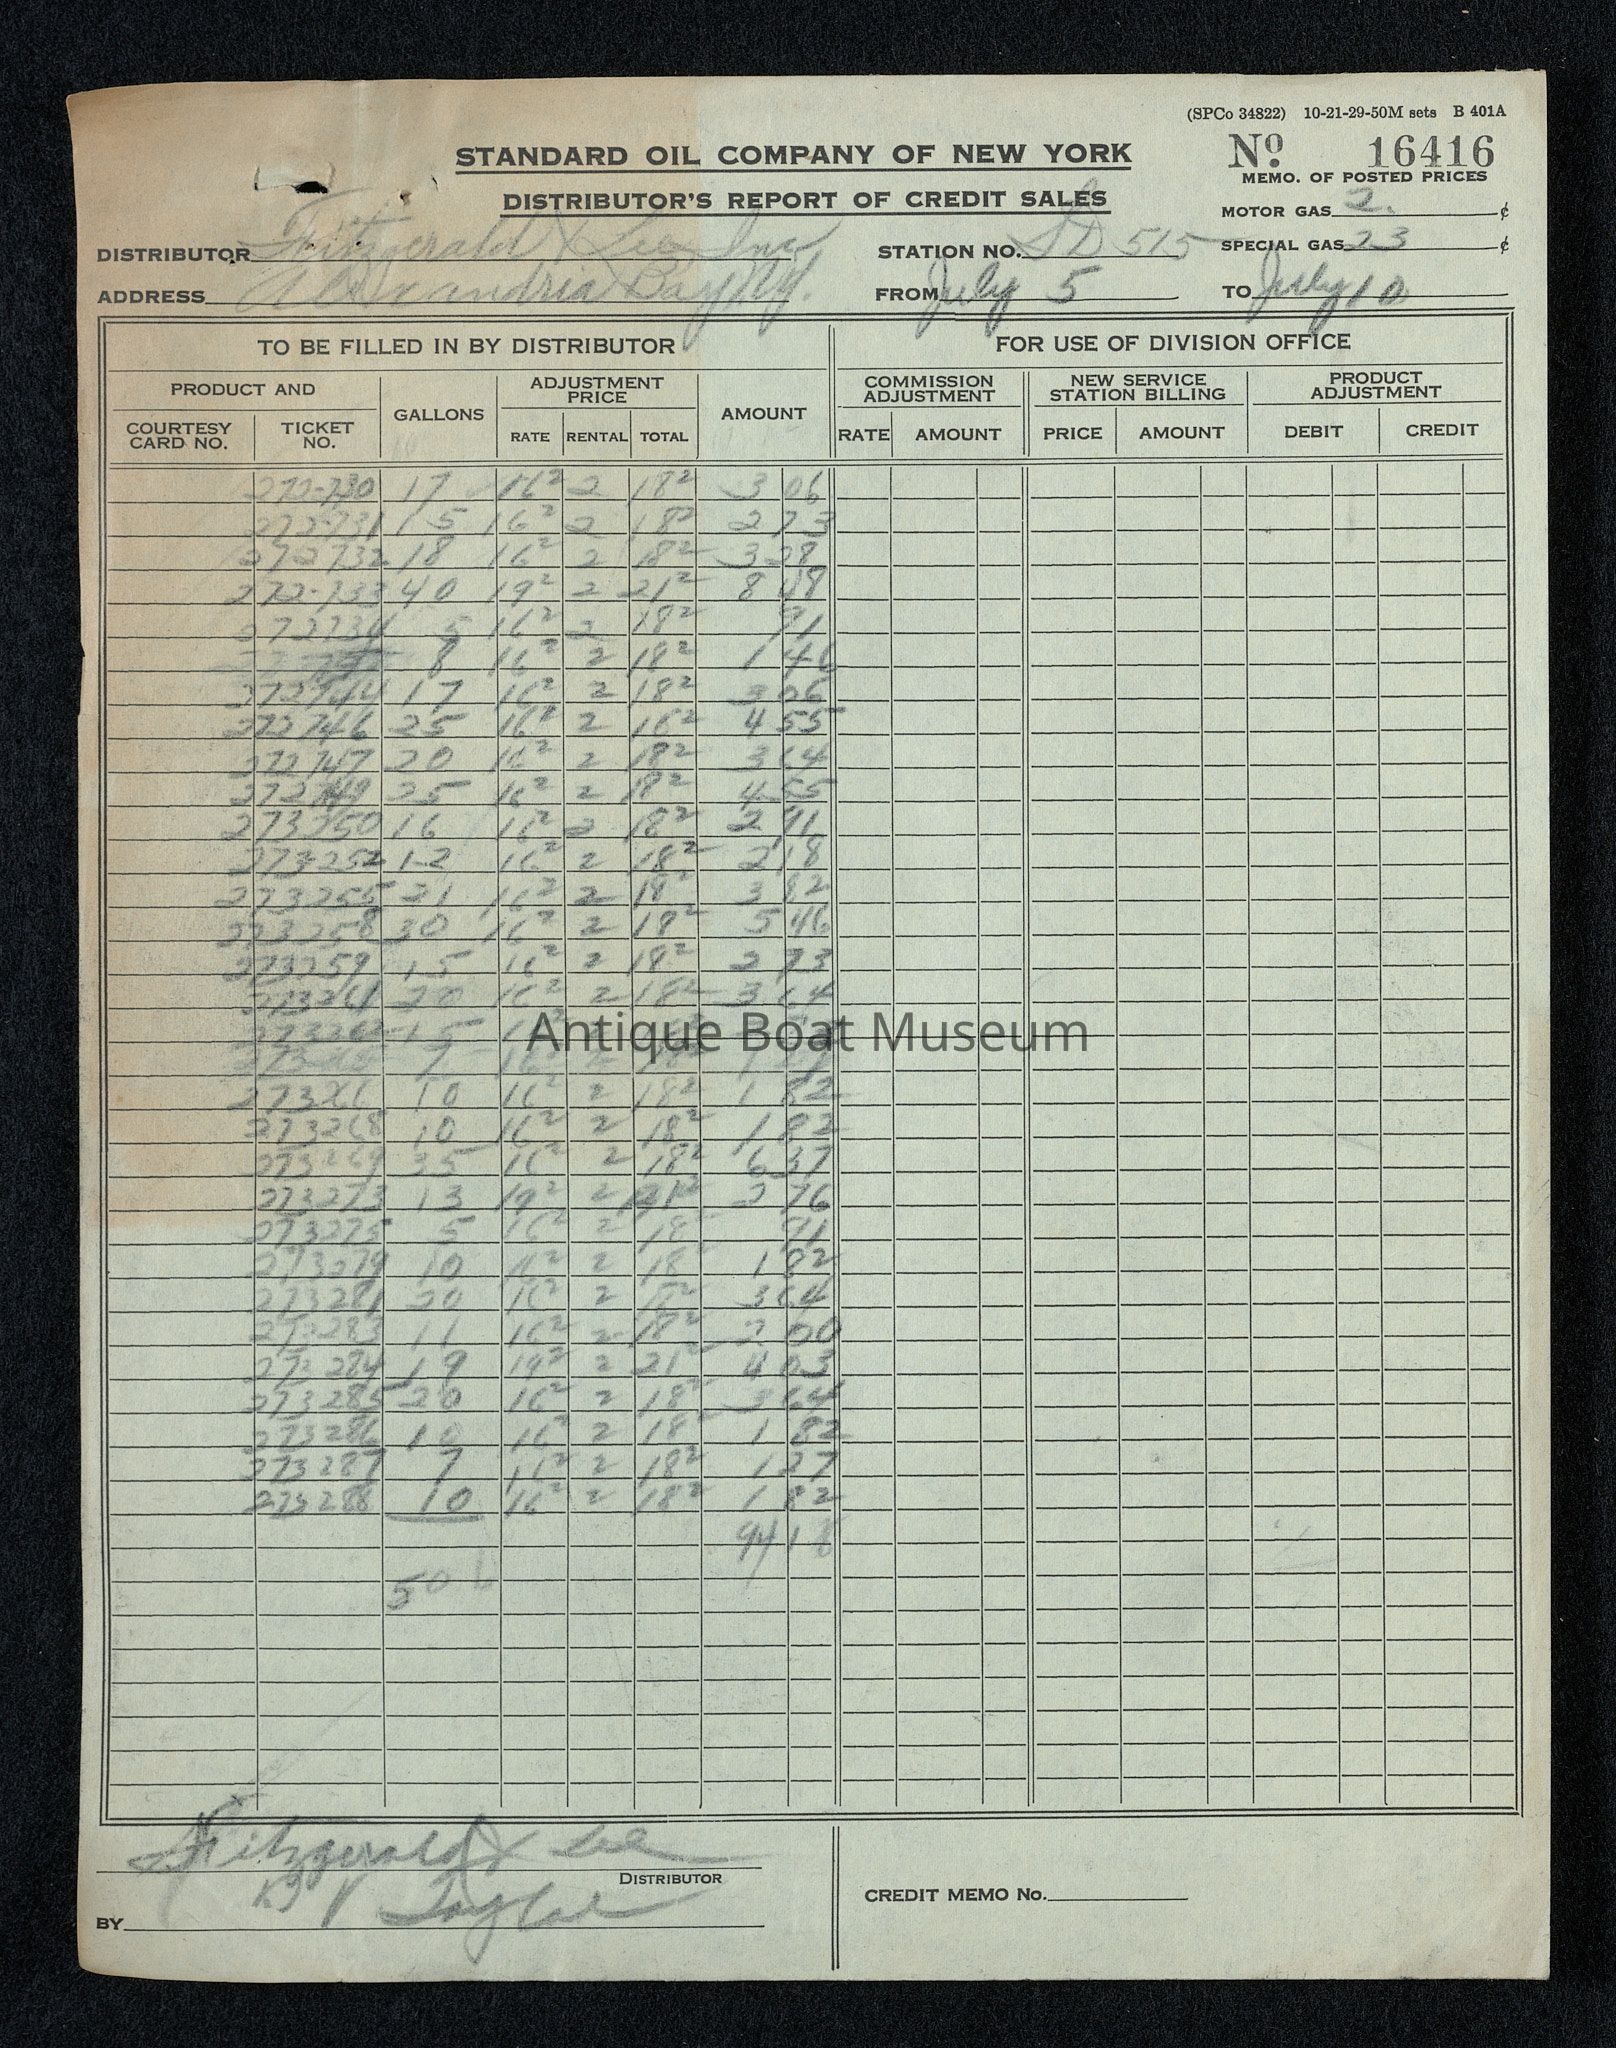 (SPCo 34822) 10-21-29-50M sets B 401A
STANDARD OIL COMPANY OF NEW YORK
No. 16416
DISTRIBUTOR'S REPORT OF CREDIT SALES
MEMO. OF POSTED PRICES
MOTOR GAS 2 ¢
DISTRIBUTOR Fitzgerald & Lee Inc
STATION NO. SD 515
SPECIAL GAS 23 ¢
ADDRESS Alexandria Bay N.Y.
FROM July 5 TO July 10
TO BE FILLED IN BY DISTRIBUTOR
FOR USE OF DIVISION OFFICE
PRODUCT AND
COURTESY CARD NO. TICKET NO. GALLONS ADJUSTMENT PRICE RATE RENTAL TOTAL AMOUNT
COMMISSION ADJUSTMENT RATE AMOUNT
NEW SERVICE STATION BILLING PRICE AMOUNT
PRODUCT ADJUSTMENT DEBIT CREDIT
272-730 17 16² 2 18² 3 06
272-731 15 16² 2 18² 2 73
272732 18 16² 2 18² 3 28
272-733 40 19² 2 21² 8 48
272734 5 16² 2 18² 91
8 16² 2 18² 1 46
272744 17 16² 2 18² 3 06
272746 25 16² 2 16² 4 55
272747 20 16² 2 18² 3 64
272749 25 16² 2 18² 4 55
273250 16 16² 2 18² 2 91
273252 12 16² 2 18² 2 18
273255 21 16² 2 18² 3 82
273258 30 16² 2 18² 5 46
273259 15 16² 2 18² 2 73
273261 20 16² 2 18² 3 64
15
Antique Boat Museum
7 16²
273266 10 16² 2 18² 1 82
273268 10 16² 2 18² 1 82
273269 35 16² 2 18² 6 37
273273 13 19² 2 21² 2 76
273275 5 16² 2 18² 91
273279 10 16² 2 18² 1 82
273281 20 16² 2 18² 3 64
273283 11 16² 2 18² 2 00
273284 19 19² 2 21² 4 03
273285 20 16² 2 18² 3 64
273286 10 16² 2 18² 1 82
273287 7 16² 2 18² 1 27
273288 10 16² 2 18² 1 82
94 18
506
Fitzgerald & Lee
DISTRIBUTOR
By Taylor
BY
CREDIT MEMO No.